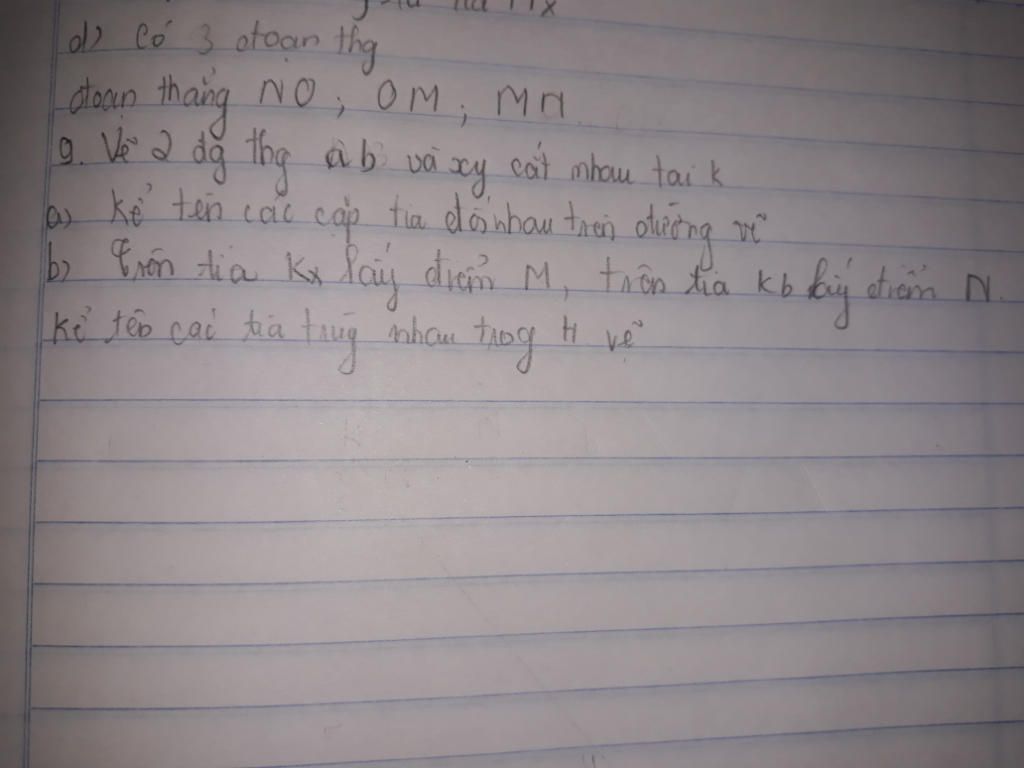 d) Có 3 đoạn thg
đoạn thẳng NO ; OM ; MN
9. Vẽ 2 dg thg ab và xy cắt nhau tai k
a) Kể tên các cặp tia đối nhau trên đường vẽ
b) Trên tia Kx lấy điểm M, trên tia kb lấy điểm N.
Kể tên các tia trùg nhau trog H vẽ